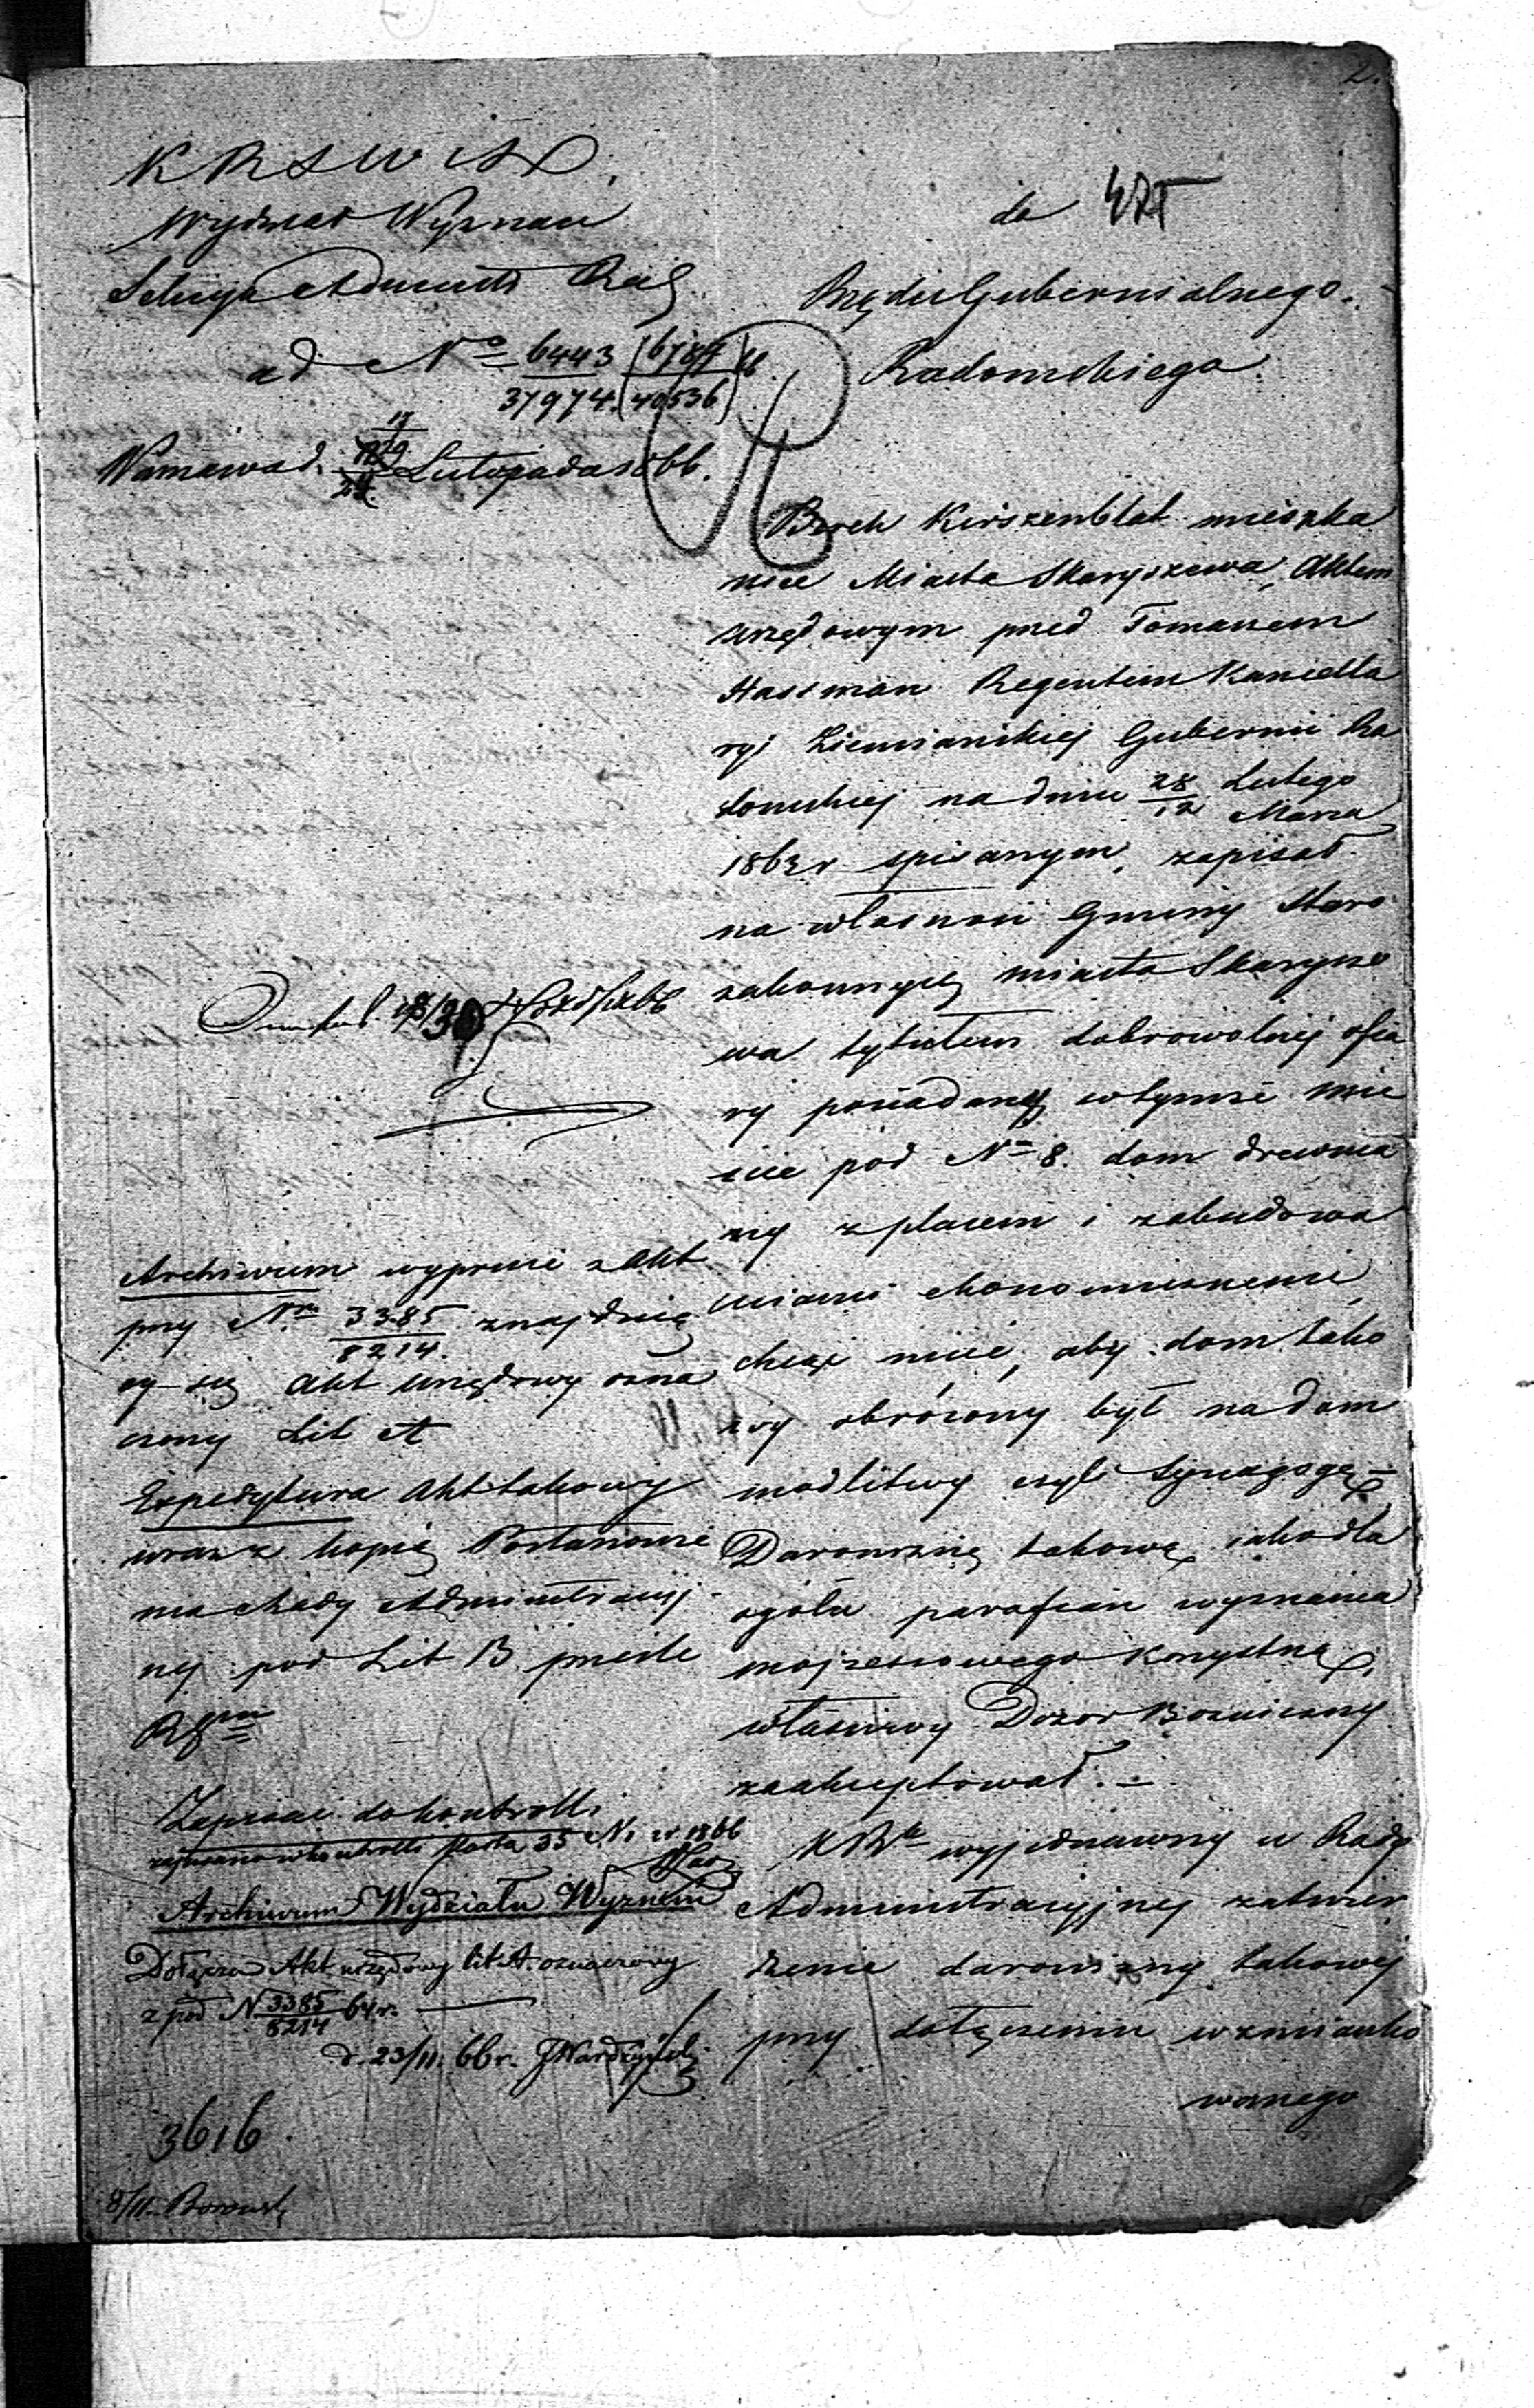 2.
K R S W i D.
Wydział Wyznań
Sekcya Admin
ad No 6443/37974 (6787/40536)
Warszawa d. 17/29 Listopada 1866.
do
Rządu Gubernialnego
Radomskiego
Berek Kirszenblat mieszka
niec Miasta Skaryszewa, Aktem
urzędowym przed Tomaszem
Hassman Regentem Kancella
ryi Ziemiańskiej Gubernii Ra
domskiej na dniu 28/12 Lutego/Marca
1863 r spisanym, zapisał
na własność Gminy Staro
zakonnych miasta Skarysze
wa tytułem dobrowolnej ofia
ry posiadany w tymże mie
ście pod No 8. dom drewnia
ny z placem i zabudowa
niami ekonomicznemi,
chcąc mieć, aby dom tako
wy obrócony był na dom
modlitwy czyli Synagogę –
Darowiznę takową jako dla
ogółu parafian wyznania
mojżeszowego korzystną,
właściwy Dozór Bożniczny
zaakceptował. –
KRz wyjednawszy u Rady
Administracyjnej zatwier
dzenie darowizny takowej
przy dołączeniu wzmianko
wanego
Archiwum wyprucie z Akt
przy Nrze 3385/8214 znajdują
cy się Akt urzędowy ozna
czony Lit A
Expedytura Akt takowy
wraz z kopią Postanowie
nia Rady Administracyj
nej pod Lit B prześle
Zapisać do kontrolli
zapisano w kontrolli karta 35 No z r. 1866
Archiwum Wydziału Wyznań
Dołącza Akt urzędowy lit A. oznaczony
z pod N 3385/8214 64 r.
d. 23/11. 66 r.
3616
8/11.